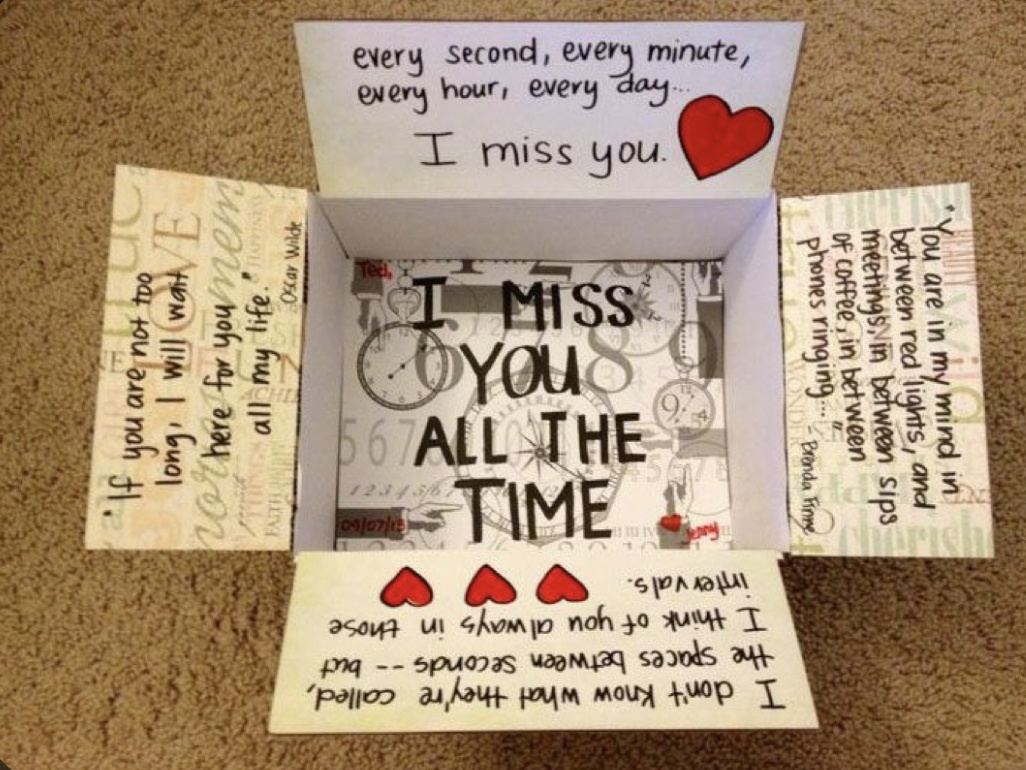 every second, every minute,
every hour, every day...
I miss you.
"If you are not too
long, I will wait
here for you
all my life."
Oscar Wilde
Ted,
I MISS
YOU
ALL THE
TIME
09/07/13
Jenny
"You are in my mind in
between red lights, and
meetings, in between sips
of coffee, in between
phones ringing..."
- Brenda
I don't know what they're called,
the spaces between seconds -- but
I think of you always in those
intervals.